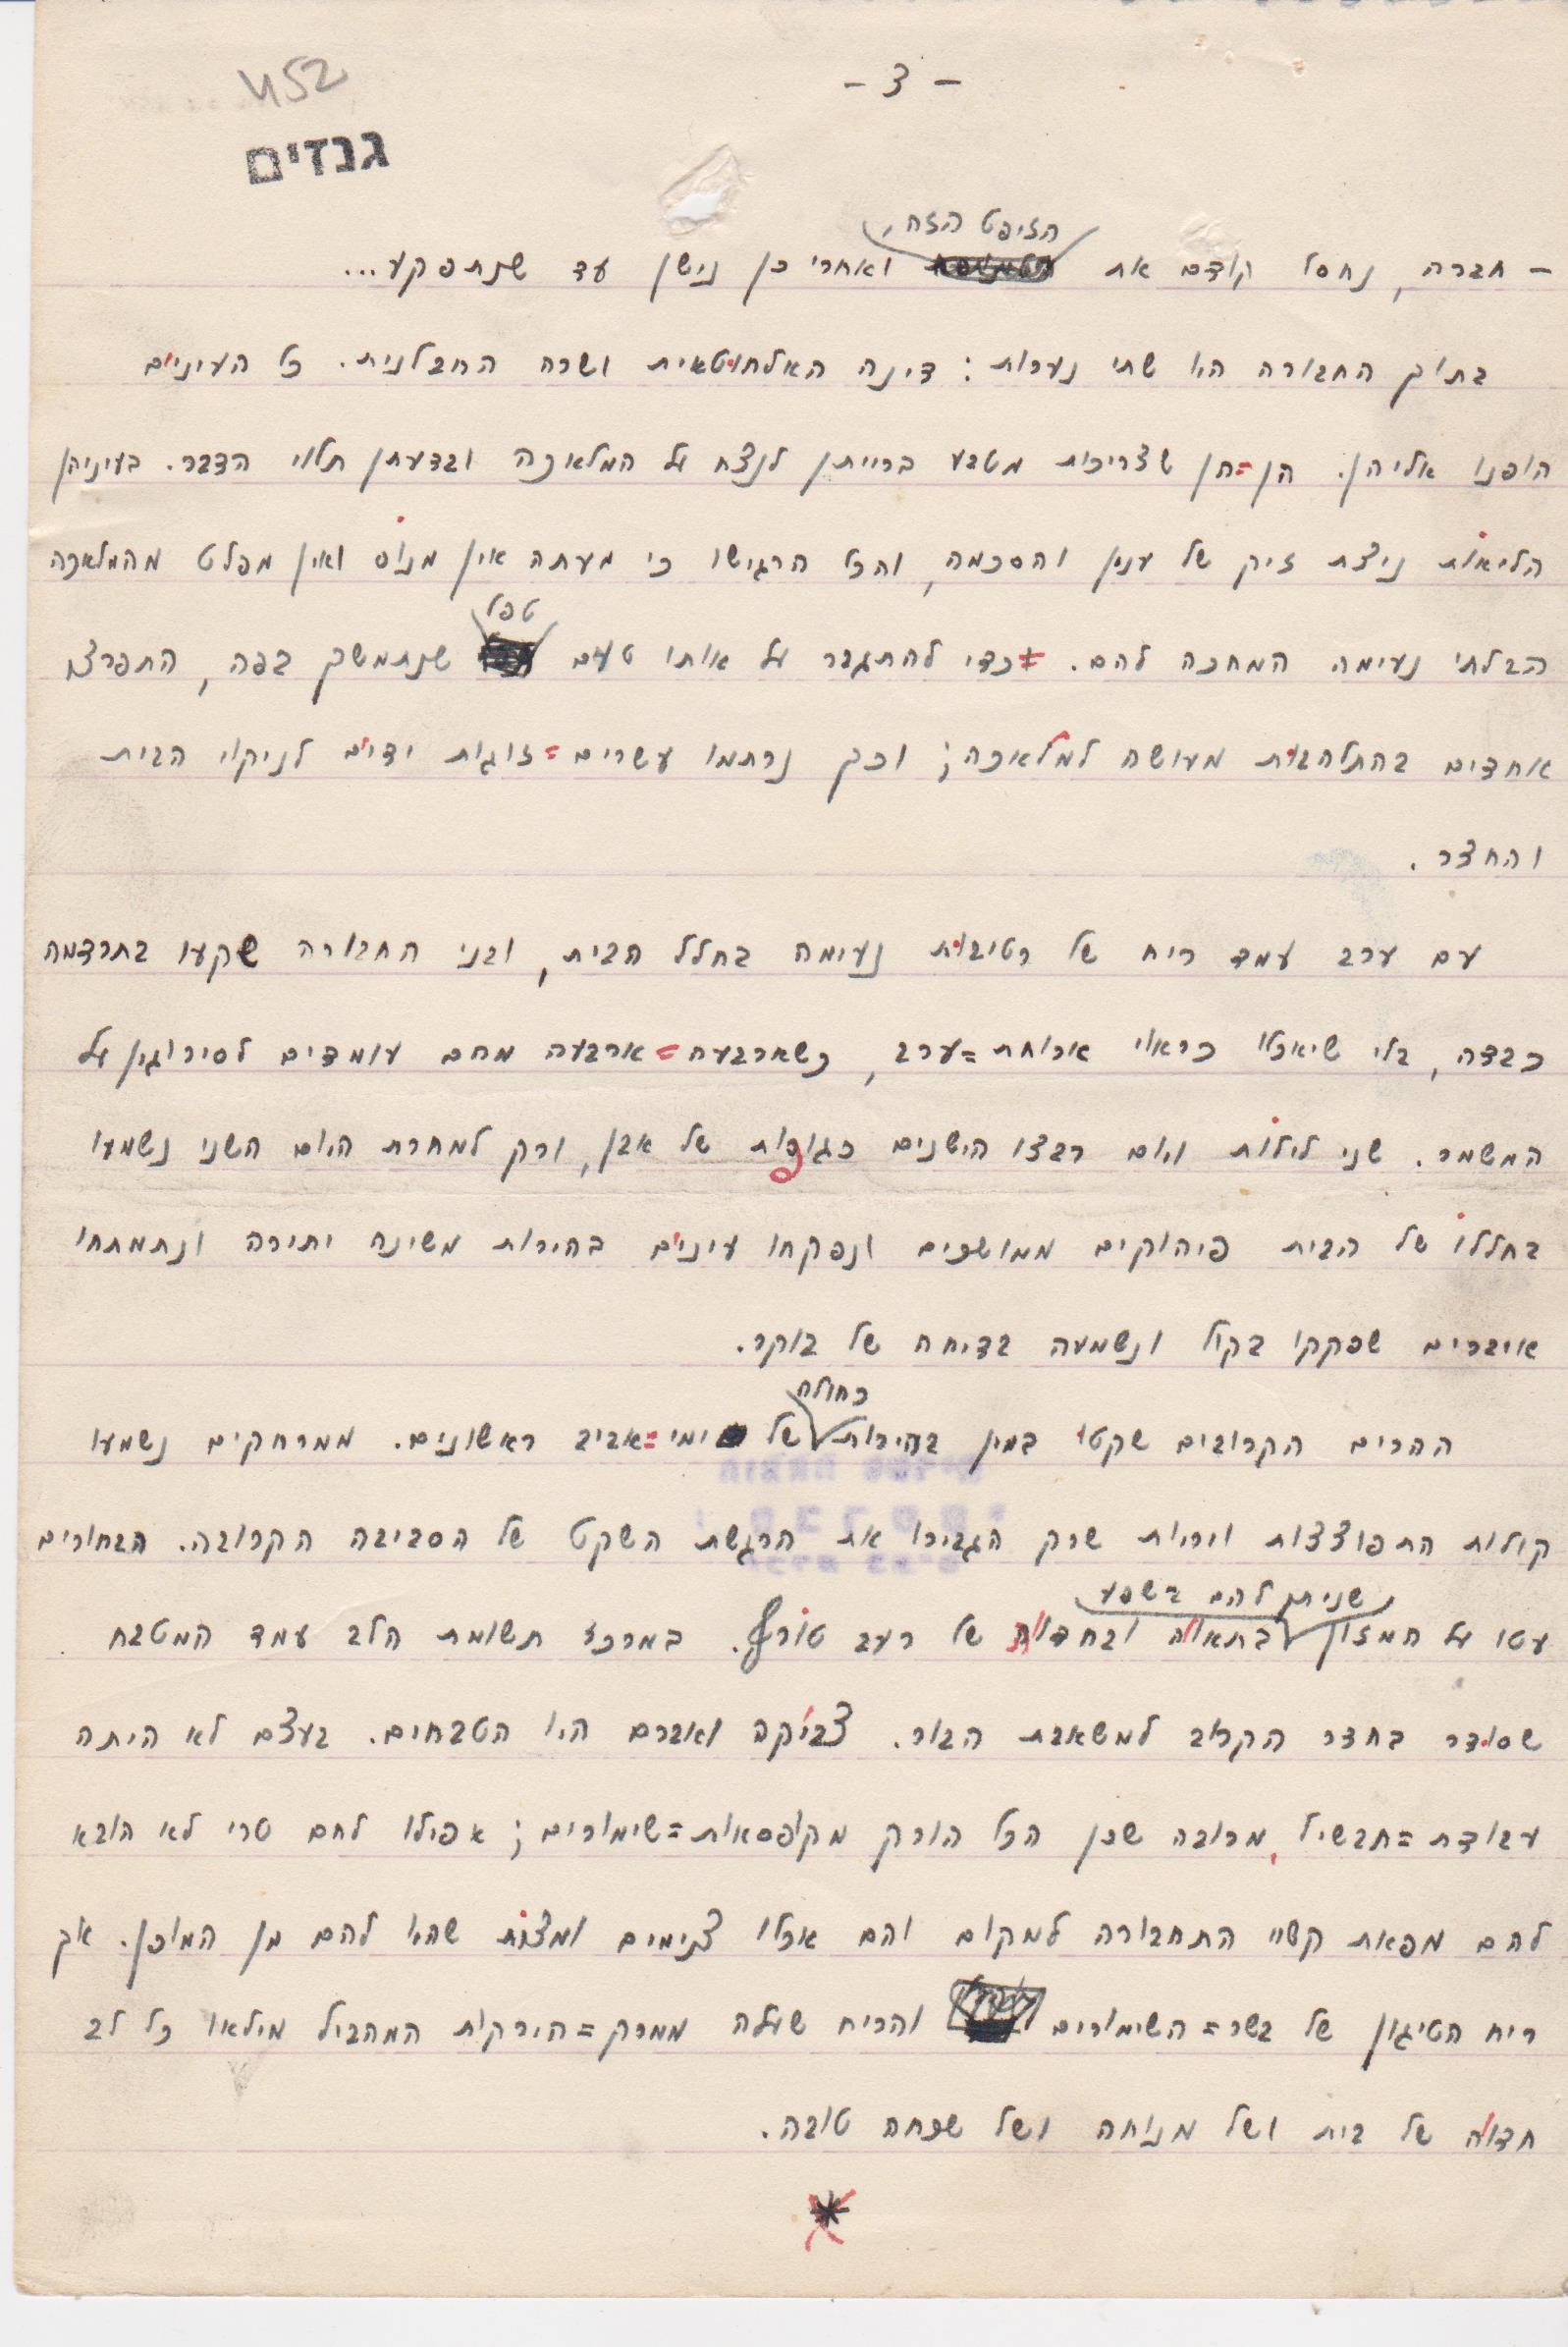 452
- 3 -
גנזים
הזיפט הזה,
- חברה, נחסל קודם את ואחרי כן נישן עד שנתפקע...
בתוך החבורה היו שתי נערות: דינה האלחוטאית ושרה החבלנית. כל העיניים
הופנו אליהן. הן=הן שצריכות מטבע ברייתן לנצח על המלאכה ובדעתן תלוי הדבר. בעיניהן
הליאות ניצת זיק של ענין והסכמה, והכל הרגישו כי מעתה אין מנוס ואין מפלט מהמלאכה
טפל
הבלתי נעימה המחכה להם. כדי להתגבר על אותו טעם שנתמשך בפה, התפרצו
אחדים בהתלהבות מעושה למלאכה; וכך נרתמו עשרים=זוגות ידיים לניקוי הבית
והחצר.
עם ערב עמד ריח של רטיבות נעימה בחלל הבית, ובני החבורה שקעו בתרדמה
כבדה, בלי שיאכלו כראוי ארוחת=ערב, כשארבעה=ארבעה מהם עומדים לסירוגין על
המשמר. שני לילות ויום רבצו הישנים כגופות של אבן, ורק למחרת היום השני נשמעו
בחללו של הבית פיהוקים ממושכים ונפקחו עיניים בהירות משינה יתירה ונתמתחו
אויברים שפקקו בקול ונשמעה בדיחה של בוקר.
כחולה
ההרים הקרובים שקטו במין בהירות של ימי=אביב ראשונים. ממרחקים נשמעו
קולות התפוצצות ויריות שרק הגבירו את הרגשת השקט של הסביבה הקרובה. הבחורים
שניתן להם בשפע
עטו על המזון בתאווה ובחדווה של רעב טורף. במרכז תשומת הלב עמד המטבח
שסודר בחצר הקרוב למשאבת הבור. צביקה ואברם היו הטבחים. בעצם לא היתה
עבודת=תבשיל מרובה שכן הכל הורק מקופסאות=שימורים; אפילו לחם טרי לא הובא
להם מפאת קשיי התחבורה למקום והם אכלו צנימים ומצות שהיו להם מן המוכן. אך
ריח הטיגון של בשר=השימורים והריח שעלה ממרק=הירקות המהביל מילאו כל לב
חדווה של בית ושל מנוחה ושל שכחה טובה.
*